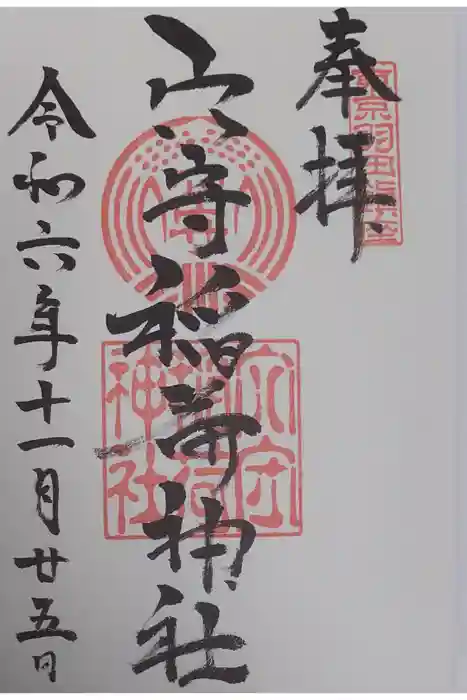 東京羽田鎮座
奉拝
穴守稲荷神社
穴守
稲荷
神社
令和六年十一月廿五日